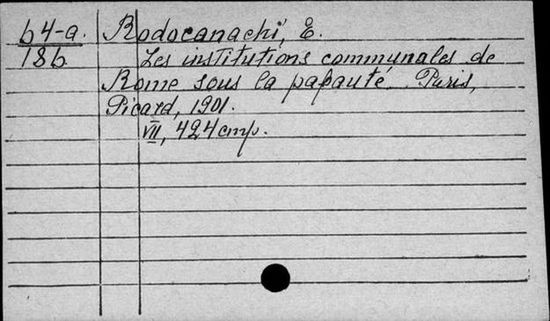 64-a. Rodocanachi, E.
186 Les institutions communales de
Rome sous la papauté. Paris,
Picard, 1901.
VII, 424 стр.